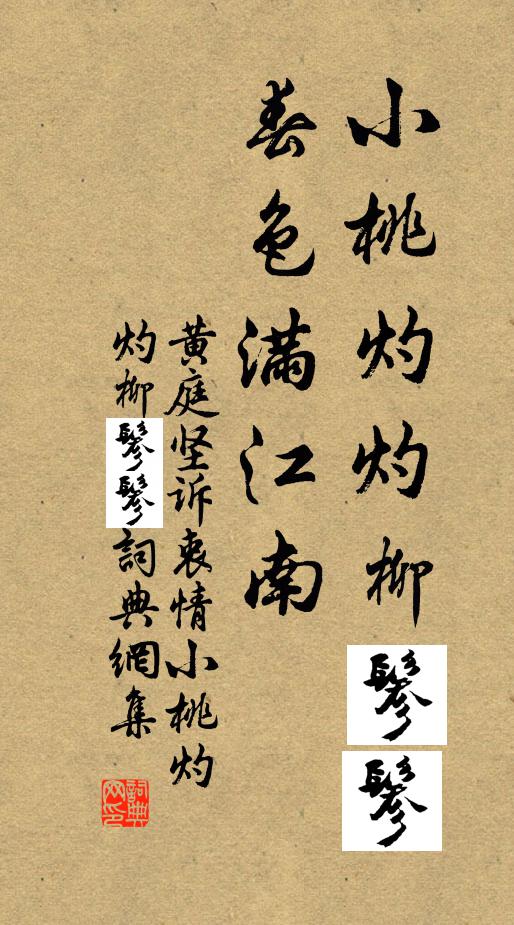 小桃灼灼柳鬖鬖
春色满江南
黄庭坚诉衷情小桃灼
灼柳鬖鬖詞典網集
詞典网印